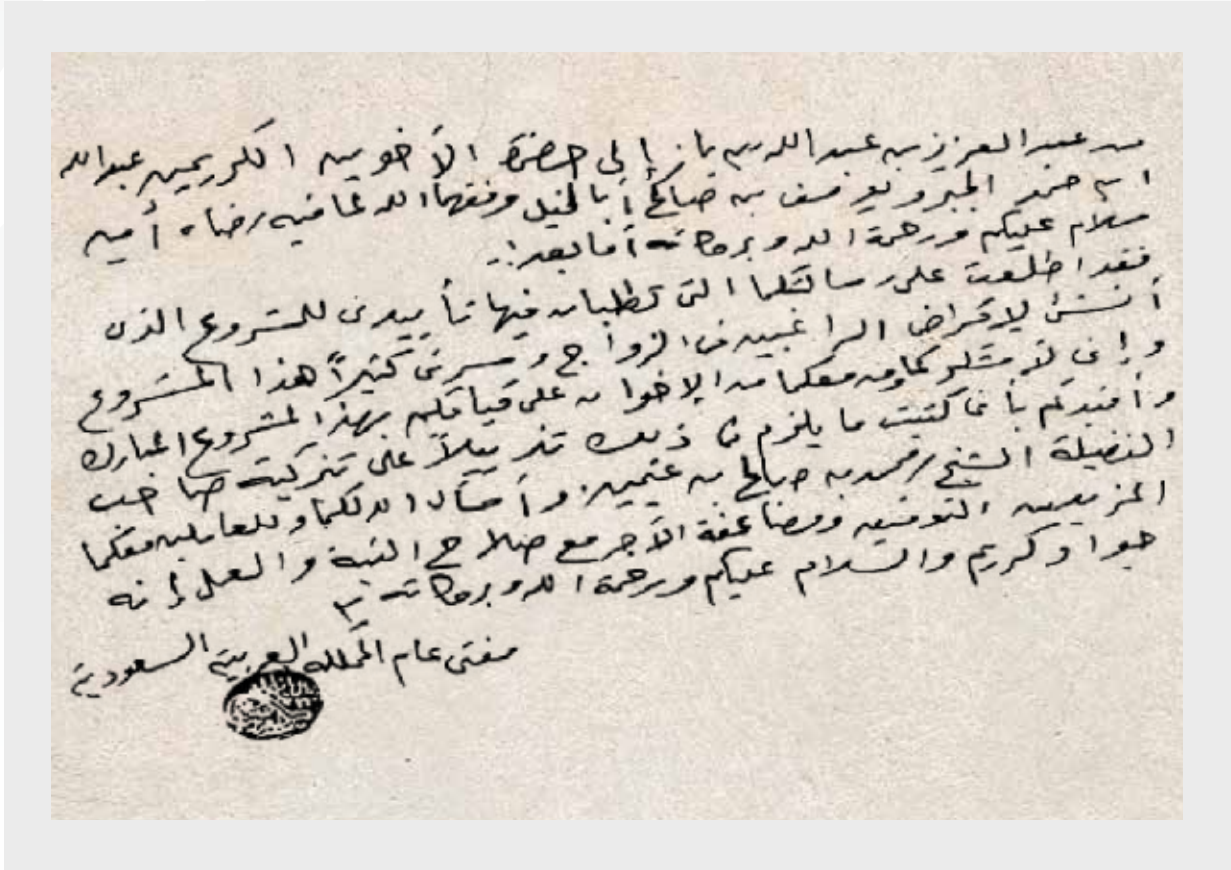 من عبد العزيز بن عبد الله بن باز إلى حضرة الأخوين الكريمين عبدالله
ابن حمد الجبر ويوسف بن صالح أبا الخيل وفقهما الله لما فيه رضاه آمين
سلام عليكم ورحمة الله وبركاته أما بعد:-
فقد اطلعت على رسالتكما التى تطلبان فيها تأييدى للمشروع الذى
أنشئ لإقراض الراغبين فى الزواج وسرنى كثيراً هذا المشروع
وإنى لأشكركما ومن معكما من الإخوان على قيامكم بهذا المشروع المبارك
وأفيدكم بأنى كتبت ما يلزم فى ذلك تذييلاً على تزكية صاحب
الفضيلة الشيخ محمد بن صالح بن عثيمين وأسأل الله لكما وللعاملين معكما
المزيد من التوفيق ومضاعفة الأجر مع صلاح النية والعمل إنه
جواد كريم والسلام عليكم ورحمة الله وبركاته
مفتى عام المملكة العربية السعودية